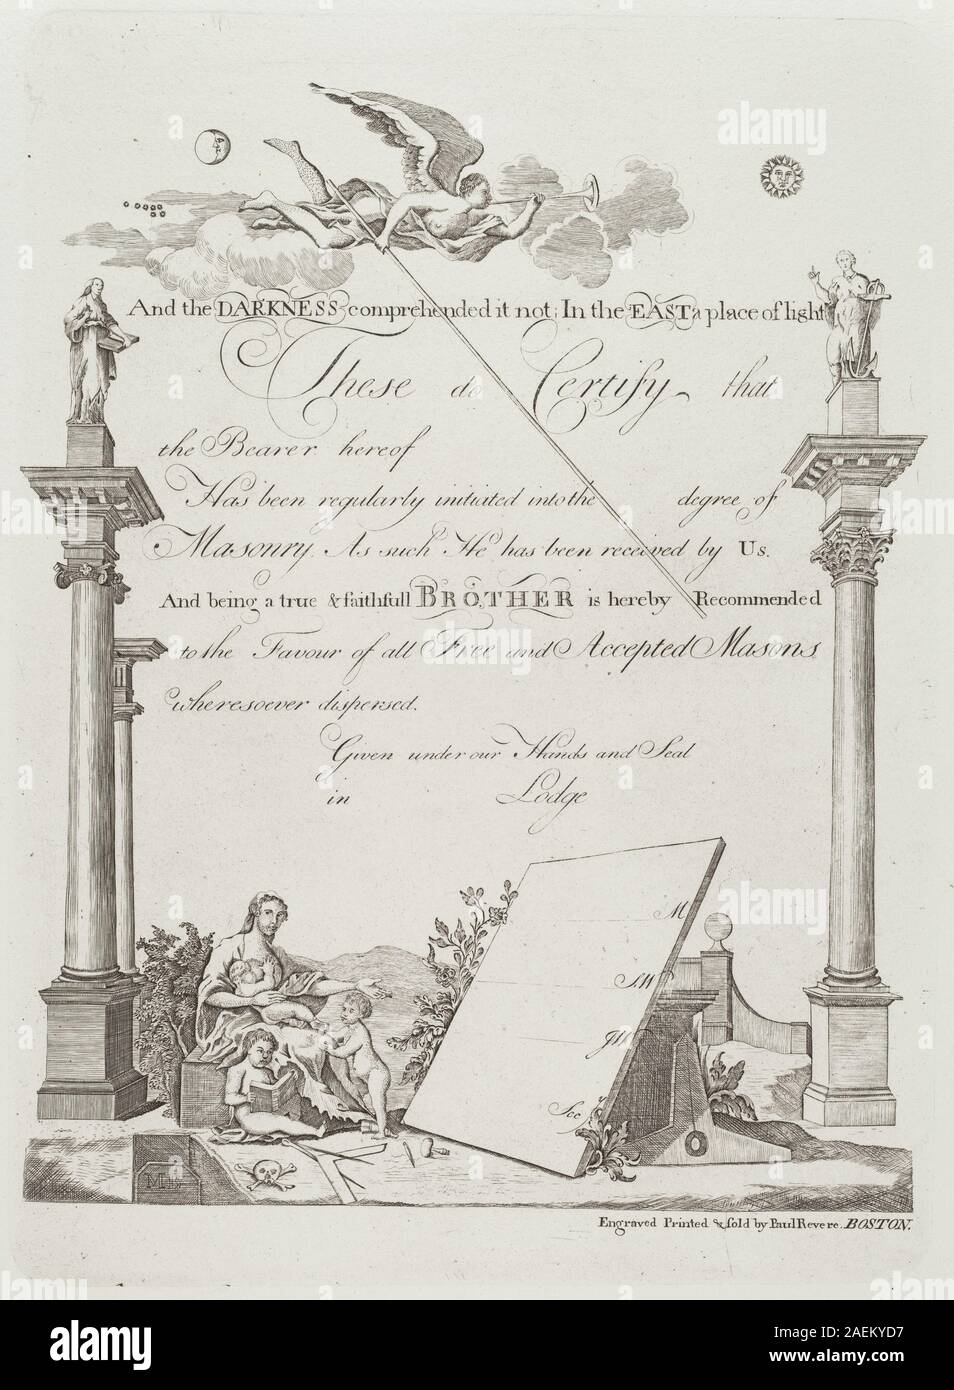 And the DARKNESS comprehended it not; In the EAST a place of light
These do Certify that
the Bearer hereof
Has been regularly initiated into the degree of
Masonry. As such He has been received by Us.
And being a true & faithfull BROTHER is hereby Recommended
to the Favour of all Free and Accepted Masons
wheresoever dispersed.
Given under our Hands and Seal
in Lodge
M
S.W
J.W
Sec.y
Engraved Printed & sold by Paul Revere. BOSTON.
alamy
alamy
Image ID: 2AEKYD7
www.alamy.com